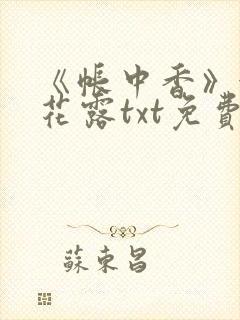 《帐中香》
花露txt免費
蘇東昌